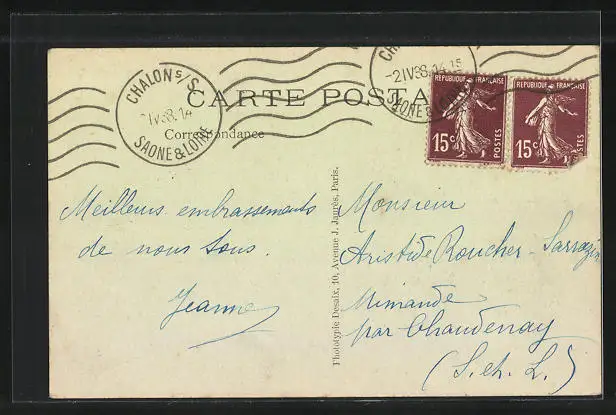 CARTE POSTA
Correspondance
CHALON S/S
-2 IV 38. 14 15
SAONE & LOIRE
CHALON S/S
IV 38. 14
SAONE & LOIRE
RÉPUBLIQUE FRANÇAISE
15c
POSTES
RÉPUBLIQUE FRANÇAISE
15c
POSTES
Meilleurs embrassements
de nous tous.
Jeanne
Phototypie Desaix, 10, Avenue J. Jaurès, Paris.
Monsieur
Aristide Roucher-Sarrazin
Mimande
par Chaudenay
(S. et L.)